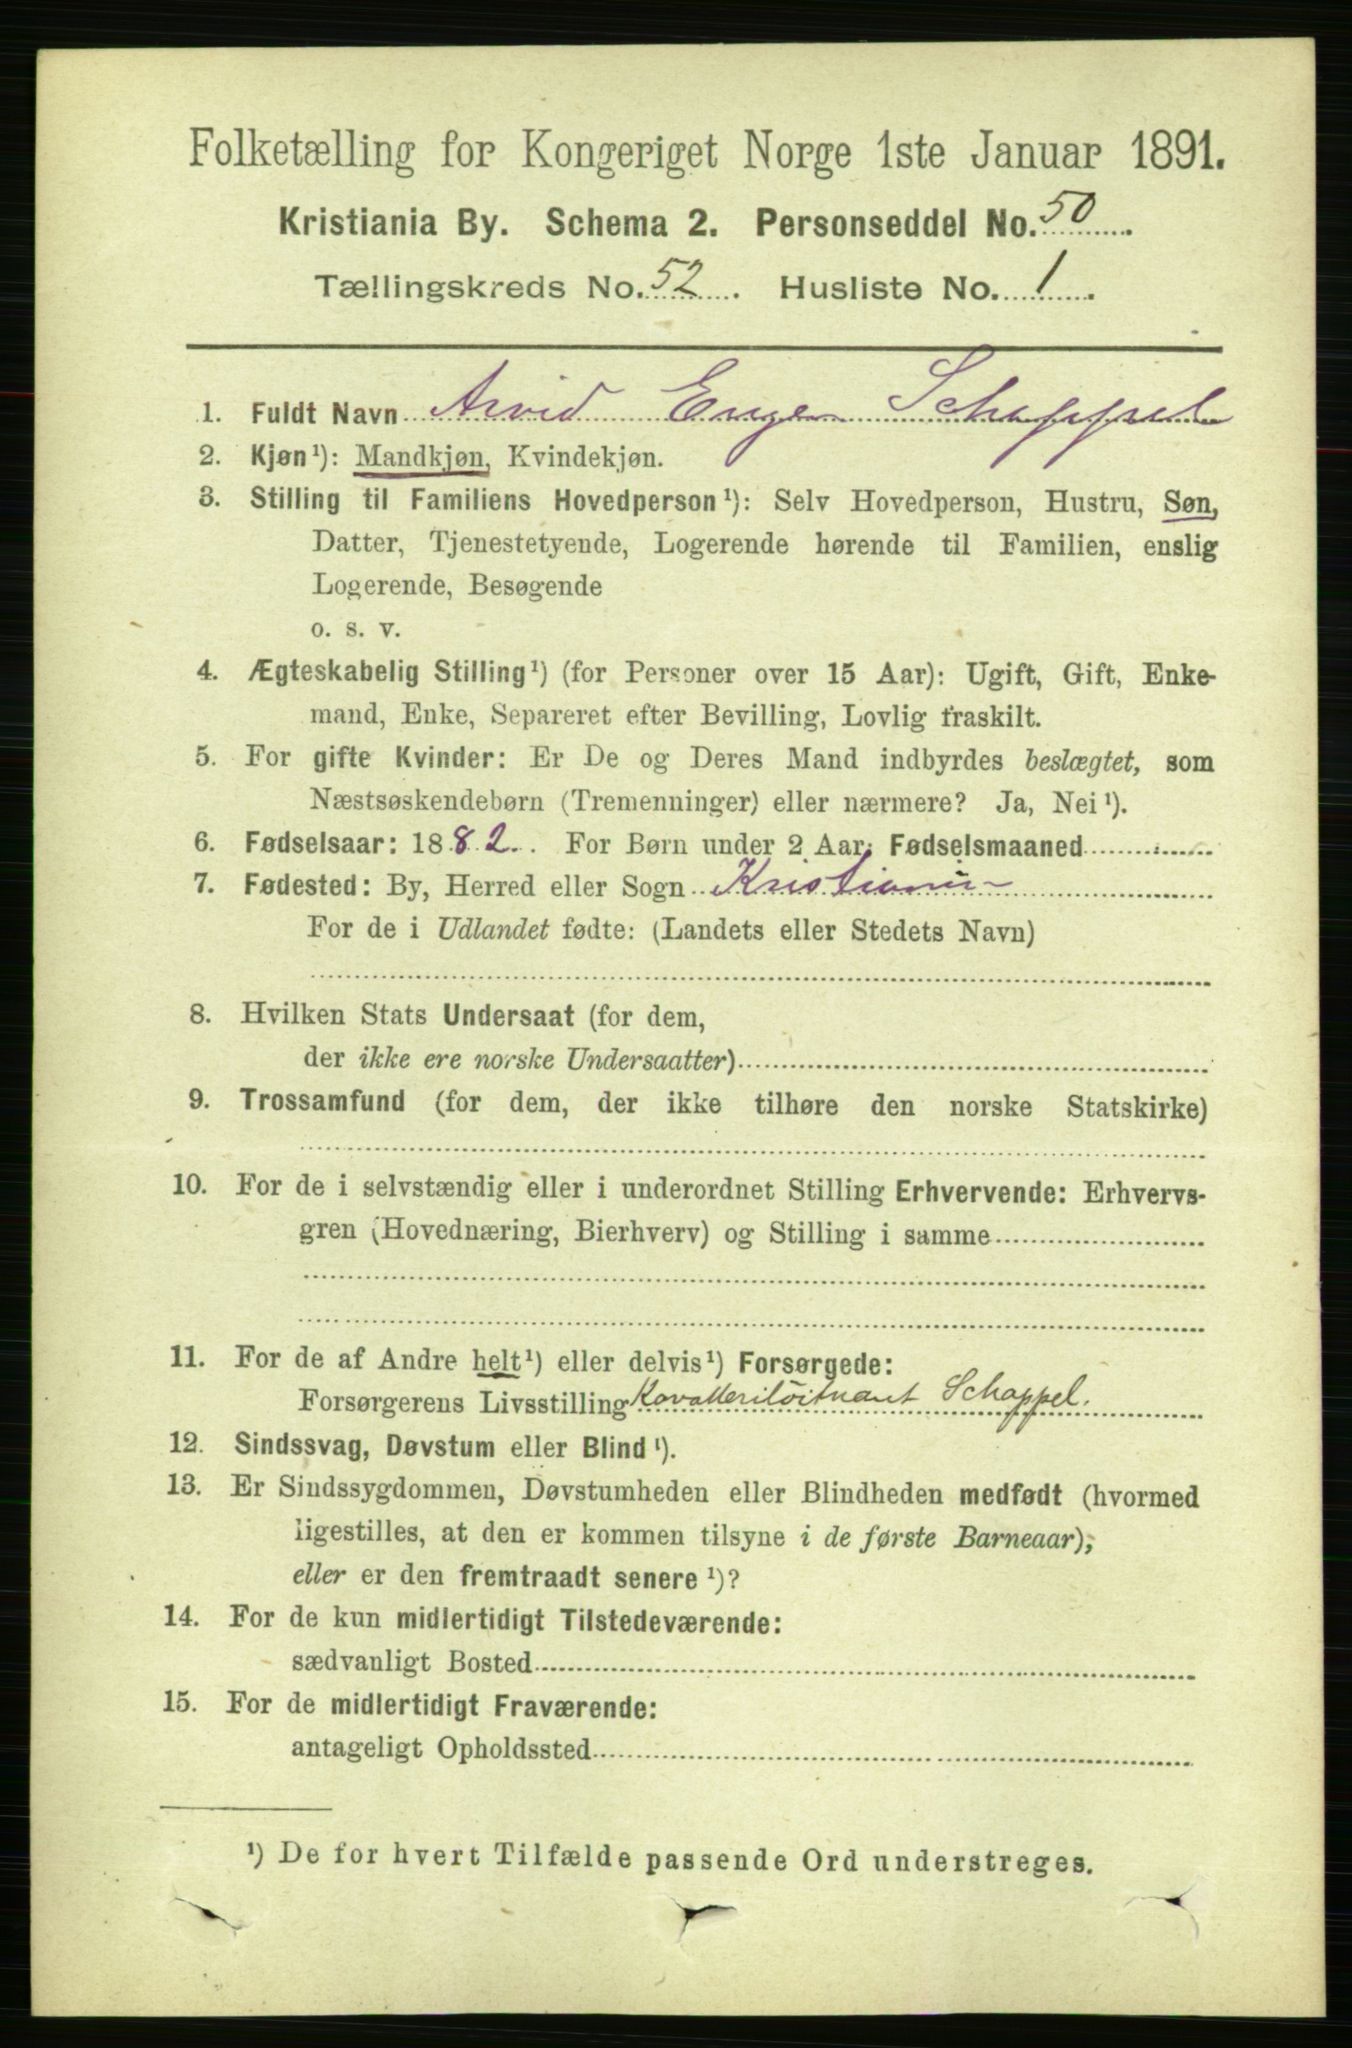 Folketælling for Kongeriget Norge 1ste Januar 1891.
Kristiania By. Schema 2. Personseddel No. 50.
Tællingskreds No. 52. Husliste No. 1.
1. Fuldt Navn Arvid Eugen Schappel
2. Kjøn¹): Mandkjøn, Kvindekjøn.
3. Stilling til Familiens Hovedperson¹): Selv Hovedperson, Hustru, Søn,
Datter, Tjenestetyende, Logerende hørende til Familien, enslig
Logerende, Besøgende
o. s. v.
4. Ægteskabelig Stilling¹) (for Personer over 15 Aar): Ugift, Gift, Enke-
mand, Enke, Separeret efter Bevilling, Lovlig fraskilt.
5. For gifte Kvinder: Er De og Deres Mand indbyrdes beslægtet, som
Næstsøskendebørn (Tremenninger) eller nærmere? Ja, Nei¹).
6. Fødselsaar: 1882. For Børn under 2 Aar: Fødselsmaaned
7. Fødested: By, Herred eller Sogn Kristiania
For de i Udlandet fødte: (Landets eller Stedets Navn)
8. Hvilken Stats Undersaat (for dem,
der ikke ere norske Undersaatter)
9. Trossamfund (for dem, der ikke tilhøre den norske Statskirke)
10. For de i selvstændig eller i underordnet Stilling Erhvervende: Erhvervs-
gren (Hovednæring, Bierhverv) og Stilling i samme
11. For de af Andre helt¹) eller delvis¹) Forsørgede:
Forsørgerens Livsstilling Kavalleriløitnant Schappel.
12. Sindssvag, Døvstum eller Blind¹).
13. Er Sindssygdommen, Døvstumheden eller Blindheden medfødt (hvormed
ligestilles, at den er kommen tilsyne i de første Barneaar);
eller er den fremtraadt senere¹)?
14. For de kun midlertidigt Tilstedeværende:
sædvanligt Bosted
15. For de midlertidigt Fraværende:
antageligt Opholdssted
¹) De for hvert Tilfælde passende Ord understreges.